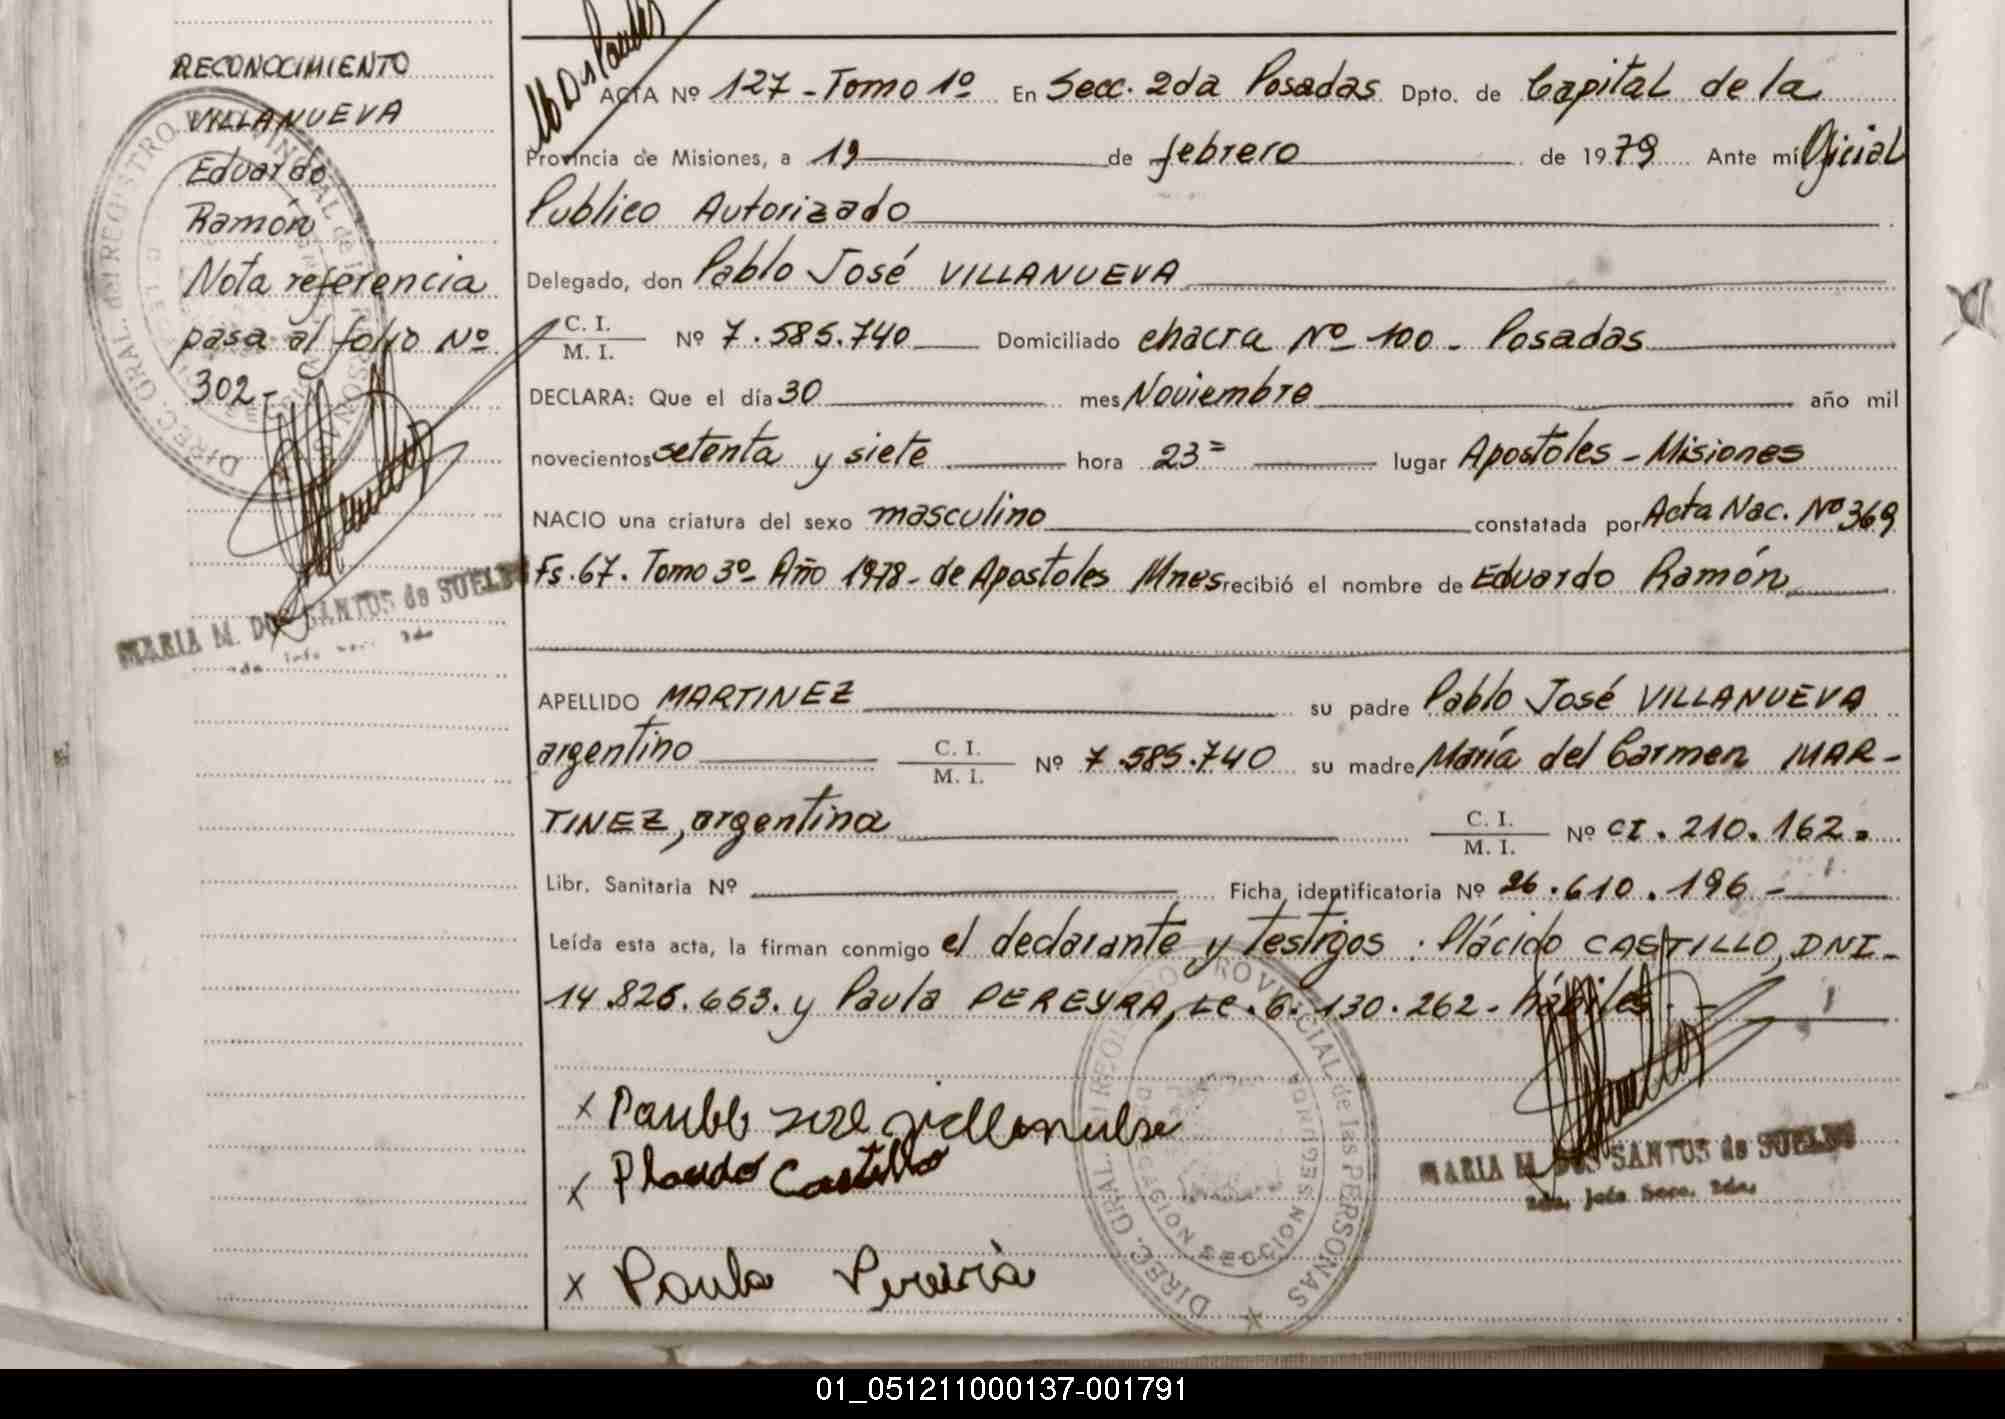 RECONOCIMIENTO
VILLANUEVA
Eduardo
Ramón
Nota referencia
pasa al folio Nº
302-
MARIA M. DOS SANTOS de SUELDO
ACTA Nº 127 - Tomo 1º En Secc. 2da Posadas Dpto. de Capital de la
Provincia de Misiones, a 19 de febrero de 1979 Ante mí Oficial
Publico Autorizado
Delegado, don Pablo José VILLANUEVA
C. I.
M. I. Nº 7.585.740 Domiciliado chacra Nº 100 - Posadas
DECLARA: Que el día 30 mes Noviembre año mil
novecientos setenta y siete hora 23= lugar Apostoles - Misiones
NACIO una criatura del sexo masculino constatada por Acta Nac. Nº 369
Fs. 67. Tomo 3º- Año 1978- de Apostoles Mnes recibió el nombre de Eduardo Ramón
APELLIDO MARTINEZ su padre Pablo José VILLANUEVA
argentino C. I.
M. I. Nº 7.585.740 su madre María del Carmen MAR-
TINEZ, argentina C. I.
M. I. Nº CI. 210.162.
Libr. Sanitaria Nº Ficha identificatoria Nº 26.610.196 -
Leída esta acta, la firman conmigo el declarante y testigos: Plácido CASTILLO, DNI-
14.826.653. y Paula PEREYRA, LC. 6.130.262 - hábiles. -
x
x Castillo
x Paula
DIREC. GRAL. del REGISTRO PROVINCIAL de las PERSONAS
MARIA M. DOS SANTOS de SUELDO
Jefe Secc. 2da.
01_051211000137-001791